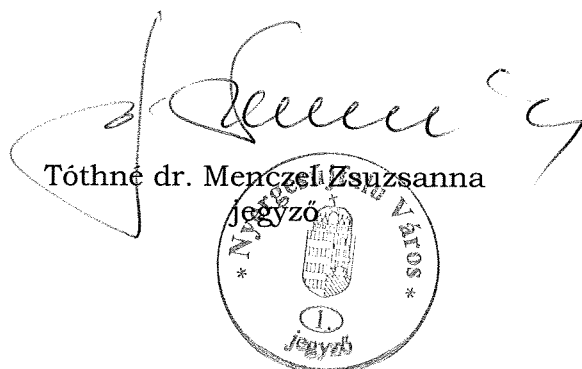 Tóthné dr. Menczel Zsuzsanna
jegyző
* Nyergesújfalu Város *
1.
jegyző